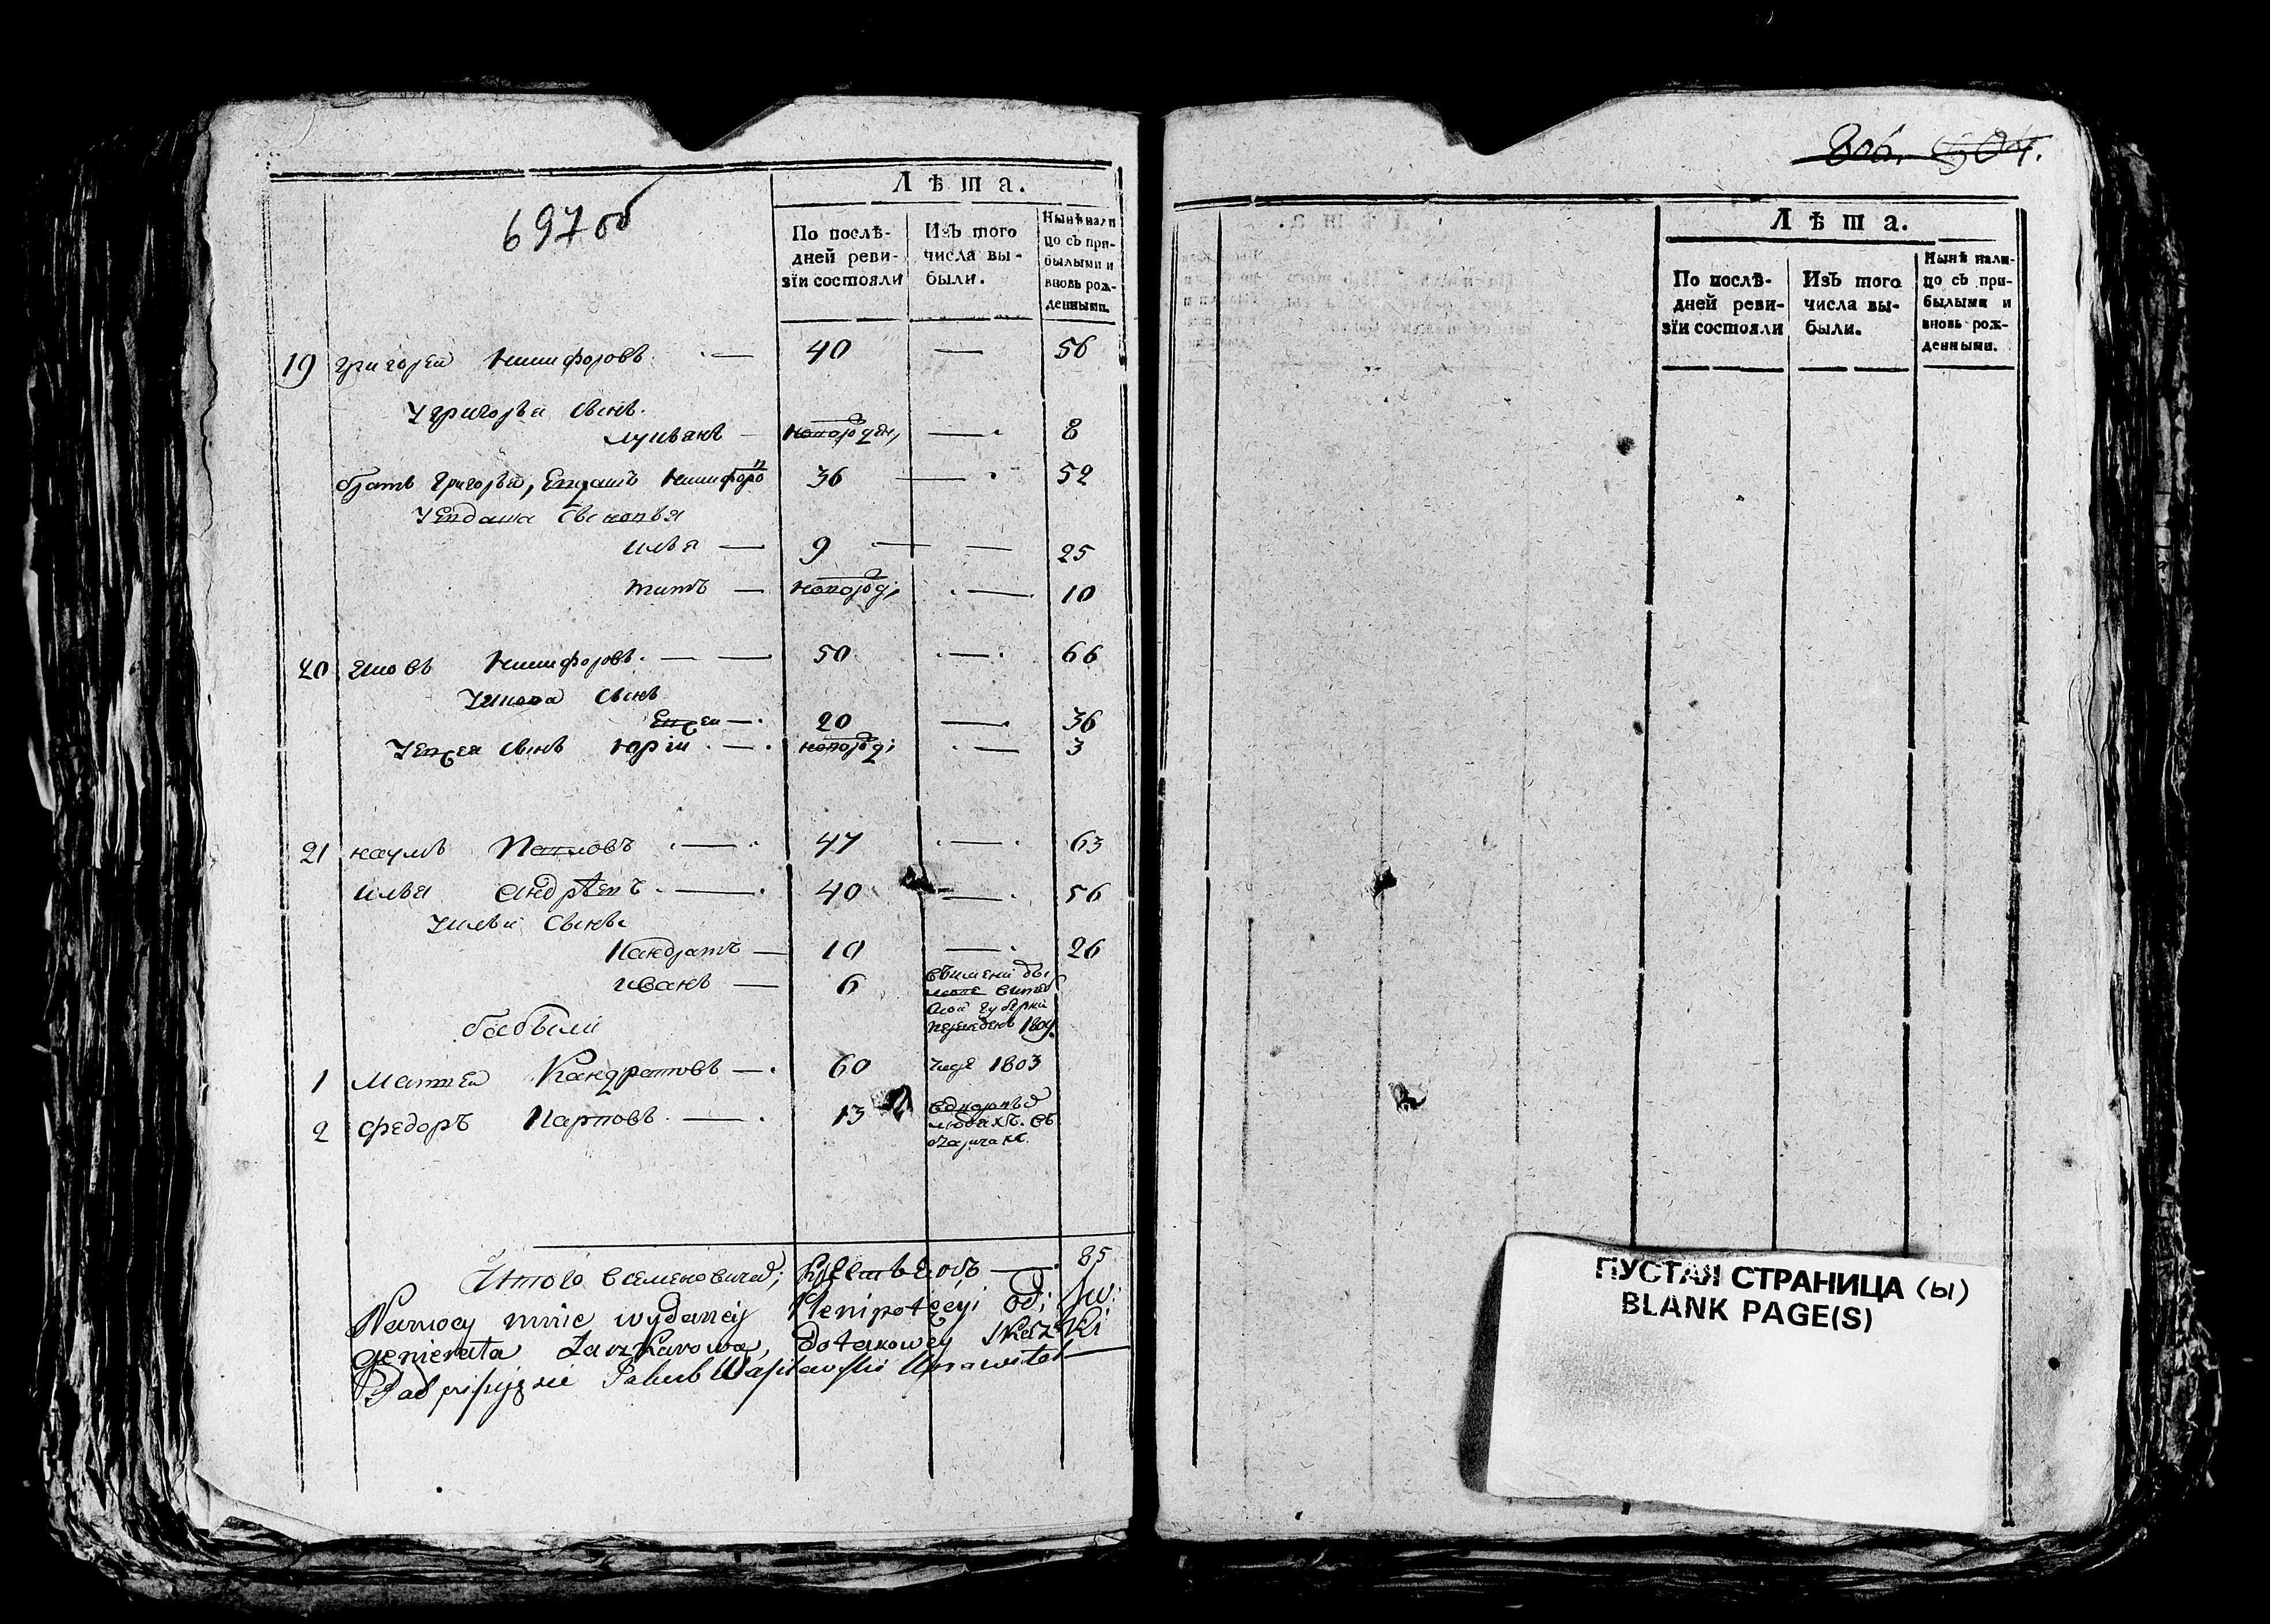 697 об
Лѣта.
По послѣ-
дней реви-
зїи состояли
Изъ того
числа вы-
были.
Нынѣ нали
цо съ при-
былыми и
вновь рож-
денными.
19 григорей никифоровъ. — 40 — 56
У григорья сынъ.
лукьянъ — новорожден, — 8
братъ григорья, Евдашъ никифоровъ 36 — 52
У Евдаша сыновья
илья — 9 — — 25
титъ — новорожд; — 10
20 яковъ никифоровъ. — — 50 — 66
У якова сынъ
Евсеи — 20 — 36
У Евсея сынъ юріи — новорожд; — 3
21 наумъ Павловъ — 47 — 63
илья андрѣевъ — 40 — 56
У ильи сыны
Кандратъ — 10 — 26
иванъ — 6
губерни
переведенъ 1809
бобыли
1 Матвеи Кандратовъ — 60 1803
2 федоръ Карповъ. — 13
Итого 85
Namocy mnie wydaney Plenipotęcyi od; Jw:
gienierała Łaszkarowa, dotakowey skazki
Podpisuję się Jakub Wasilewski
806. 604.
Лѣта.
По послѣ-
дней реви-
зїи состояли
Изъ того
числа вы-
были.
Нынѣ нали-
цо съ при-
былыми и
вновь рож-
денными.
ПУСТАЯ СТРАНИЦА (Ы)
BLANK PAGE(S)